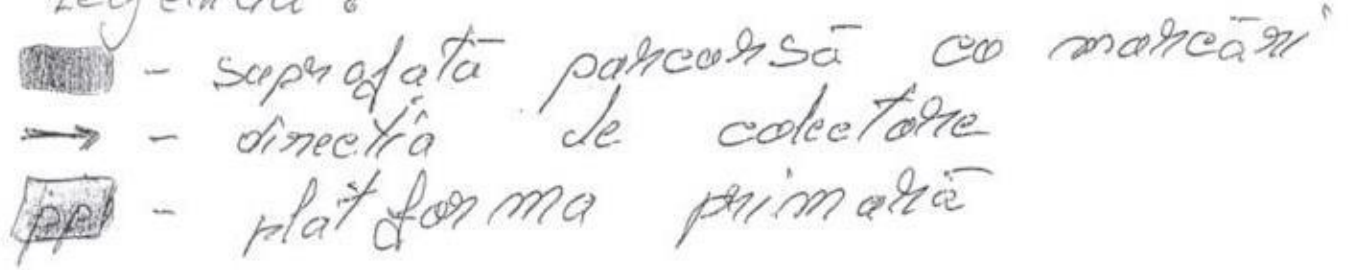 Legenda :
- suprafată parcorsă co marcări
- directia de colectare
ppl - platforma primară